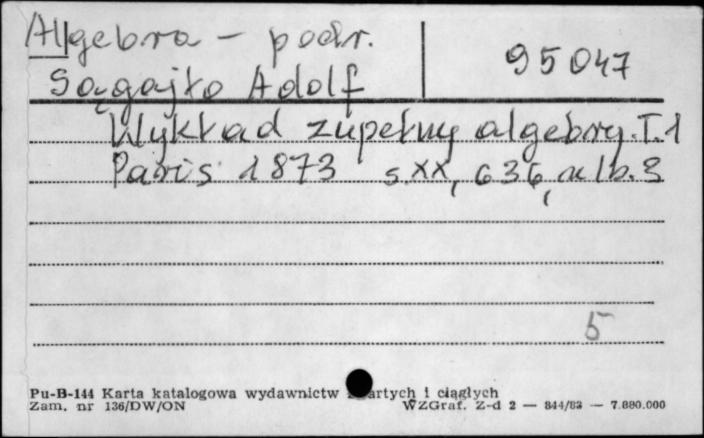 Algebra - podr.
95047
Sągajło Adolf
Wykład zupełny algebry. T. 1
Paris 1873 s. XX, 636, nlb. 3
5
Pu-B-144 Karta katalogowa wydawnictw zwartych i ciągłych
Zam. nr 136/DW/ON WZGraf. Z-d 2 — 844/83 — 7.880.000